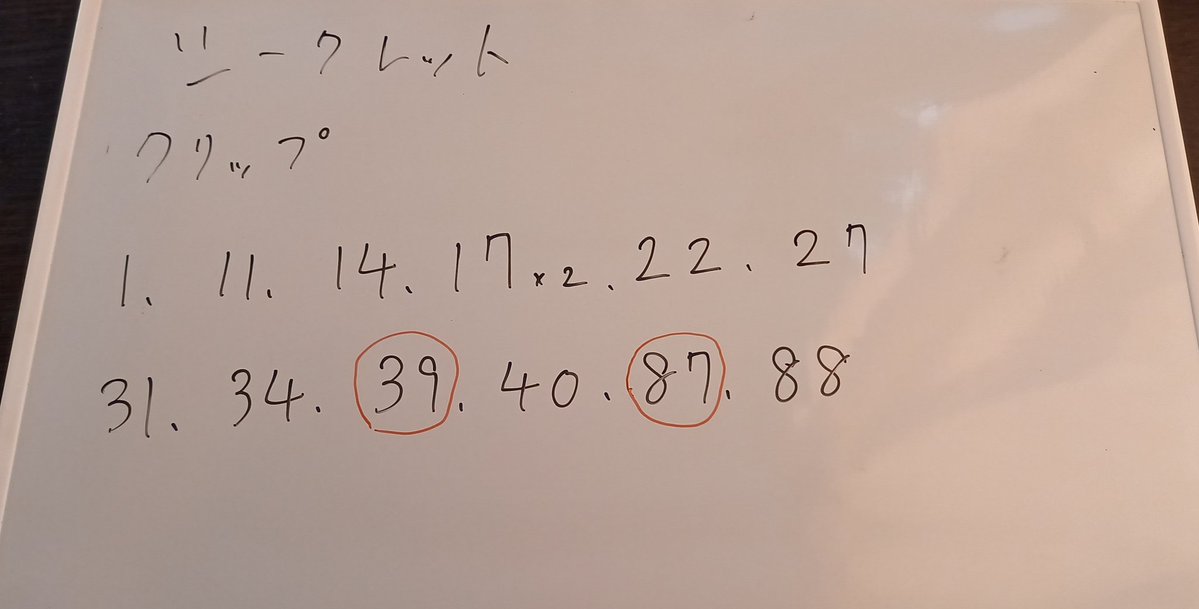 シークレット
クリップ
1. 11. 14. 17×2. 22. 27
31. 34. 39. 40. 87. 88